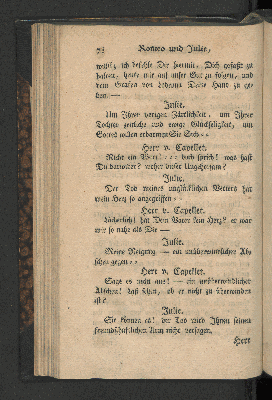 78 Romeo und Julie,
willst, ich befehle Dir hiermit, Dich gefaßt zu
halten, heute mit auf unser Gut zu folgen, und
dem Grafen von Lodrona Deine Hand zu ge-
ben. —
Julie.
Um Ihrer vorigen Zärtlichkeit, um Ihrer
Tochter zeitliche und ewige Glückseligkeit, um
Gottes willen erbarmen Sie Sich —
Herr v. Capellet.
Nicht ein Wort! doch sprich! was hast
Du dawider? woher dieser Ungehorsam?
Julie.
Der Tod meines unglücklichen Vetters hat
mein Herz so angegriffen —
Herr v. Capellet.
Lächerlich! hat Dein Vater kein Herz? er war
mir so nahe als Dir —
Julie.
Meine Neigung — ein unüberwindlicher Ab-
scheu gegen —
Herr v. Capellet.
Sage es nicht aus! — ein unüberwindlicher
Abscheu! laß sehen, ob er nicht zu überwinden
ist?
Julie.
Sie können es! der Tod wird Ihnen seinen
freundschaftlichen Arm nicht versagen.
Herr